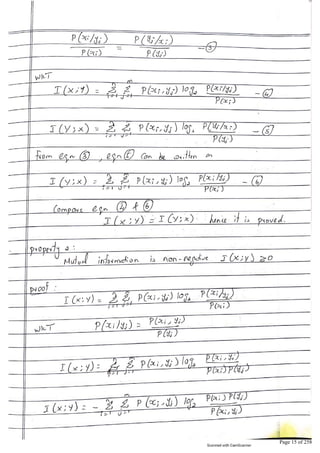 P(xi/yj) / P(xi) = P(yj/xi) / P(yj) —③
WKT
I(x;y) = Σ(i=1 to n) Σ(j=1 to m) P(xi,yj) log₂ P(xi/yj) / P(xi) —④
I(Y;x) = Σ(i=1 to n) Σ(j=1 to m) P(xi,yj) log₂ P(yj/xi) / P(yj) —⑤
From eqn ③, eqn ⑤ can be written as
I(Y;x) = Σ(i=1 to n) Σ(j=1 to m) P(xi,yj) log₂ P(xi/yj) / P(xi) —⑥
Compare eqn ④ & ⑥
I(x;y) = I(Y;x) hence it is proved.
property 2:
Mutual information is non-negative I(x;y) ≥0
proof:
I(x;y) = Σ(i=1 to n) Σ(j=1 to m) P(xi,yj) log₂ P(xi/yj) / P(xi)
WKT P(xi/yj) = P(xi,yj) / P(yj)
I(x;y) = Σ(i=1 to n) Σ(j=1 to m) P(xi,yj) log₂ P(xi,yj) / P(xi) P(yj)
I(x;y) = - Σ(i=1 to n) Σ(j=1 to m) P(xi,yj) log₂ P(xi) P(yj) / P(xi,yj)
Scanned with CamScanner
Page 15 of 258